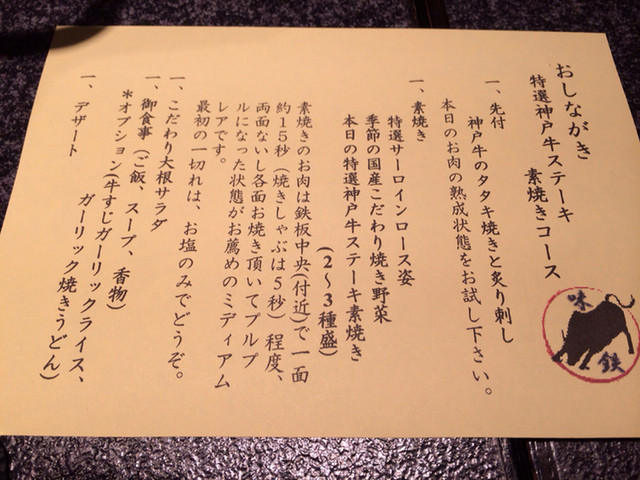 おしながき
特選神戸牛ステーキ
素焼きコース
一、先付
神戸牛のタタキ焼きと炙り刺し
本日のお肉の熟成状態をお試し下さい。
一、素焼き
特選サーロインロース姿
季節の国産こだわり焼き野菜
本日の特選神戸牛ステーキ素焼き
(2～3種盛)
素焼きのお肉は鉄板中央(付近)で一面
約15秒(焼きしゃぶは5秒)程度、
両面ないし各面お焼き頂いてプルプ
ルになった状態がお薦めのミディアム
レアです。
最初の一切れは、お塩のみでどうぞ。
一、こだわり大根サラダ
一、御食事(ご飯、スープ、香物)
*オプション(牛すじガーリックライス、
ガーリック焼きうどん)
一、デザート
味
鉄